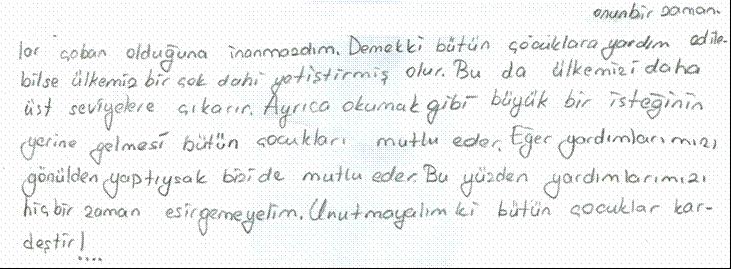 onunbir zaman.
lar çoban olduğuna inanmazdım. Demekki bütün çocuklara yardım edile-
bilse ülkemiz bir çok dahi yetiştirmiş olur. Bu da ülkemizi daha
üst seviyelere çıkarır. Ayrıca okumak gibi büyük bir isteğinin
yerine gelmesi bütün çocukları mutlu eder. Eğer yardımlarımızı
gönülden yaptıysak bizide mutlu eder. Bu yüzden yardımlarımızı
hiçbir zaman esirgemeyelim. Unutmayalım ki bütün çocuklar kar-
deştir!....